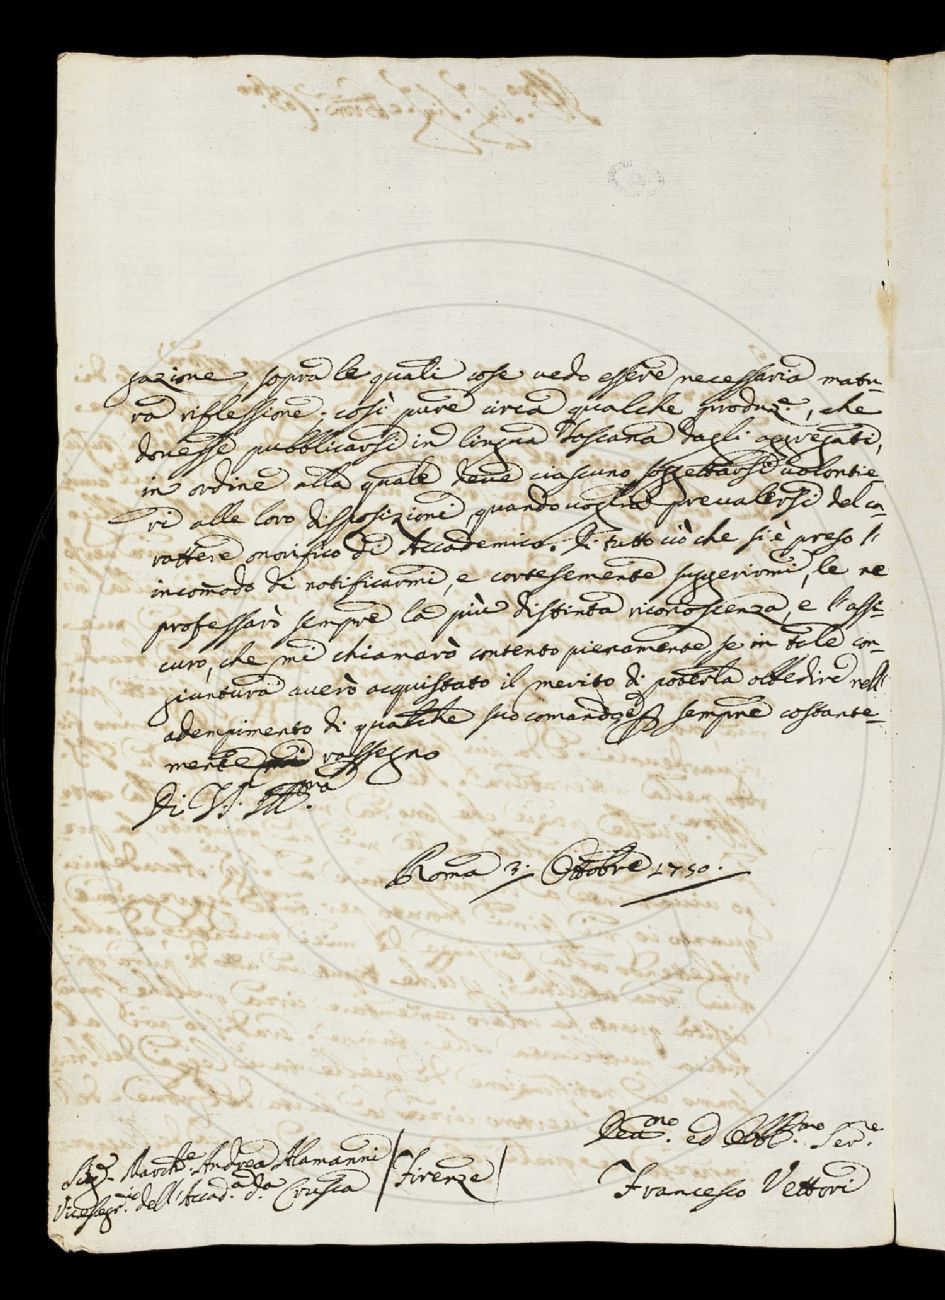 gazione, sopra le quali cose vedo essere necessaria matu-
ra riflessione. così pure circa qualche produz.e, che
dovesse pubblicarsi in lingua Toscana dagli aggregati,
in ordine alla quale deve ciascuno soggettarsi volontie-
ri alle loro disposizioni, quando voglia prevalersi del ca-
rattere onorifico di Accademico. Di tutto ciò che si è preso l'
incomodo di notificarmi, e cortesemente suggerirmi, le ne
professarò sempre la più distinta riconoscenza, e l'assi-
curo, che mi chiamarò contento pienamente se in tale con-
giuntura averò acquistato il merito di poterla obbedire nell'
adempimento di qualche suo comando; e sempre costante-
mente mi rassegno
Di V.S. Ill.ma
Roma 3. Ottobre 1750.
Dev.mo ed Obbl.mo Ser.e
Francesco Vettori
Sig.r March.e Andrea Alamanni
Vicesegr.io dell'Accad.a d.a Crusca
Firenze